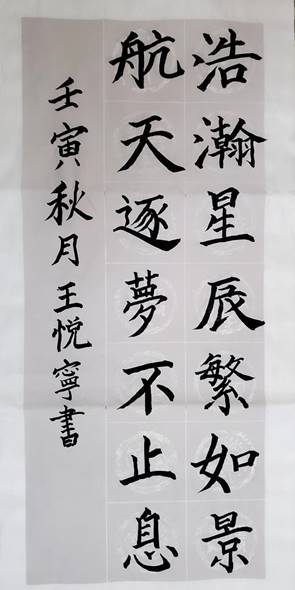 浩瀚星辰繁如景
航天逐夢不止息
壬寅秋月王悦寧書